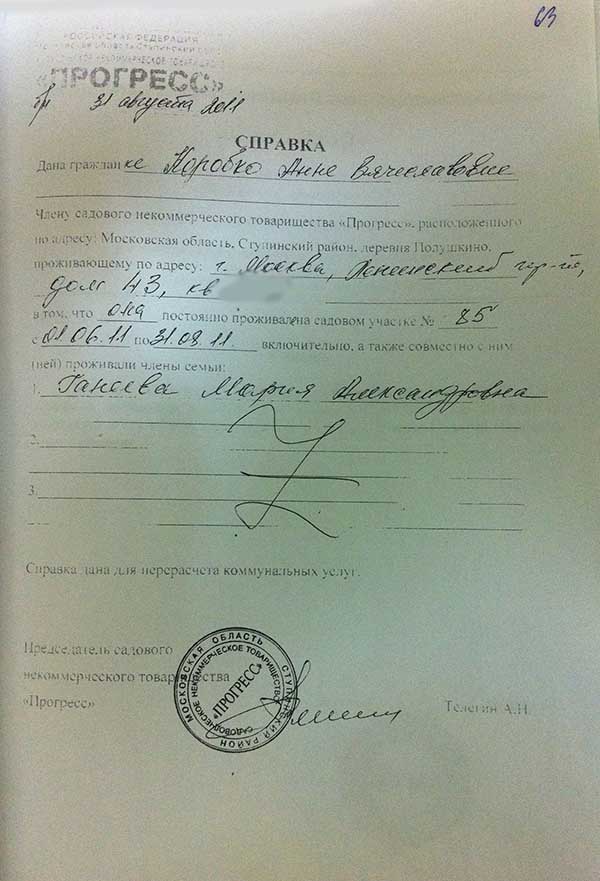 63
РОССИЙСКАЯ ФЕДЕРАЦИЯ
Московская область Ступинский район
САДОВОЕ НЕКОММЕРЧЕСКОЕ ТОВАРИЩЕСТВО
«ПРОГРЕСС»
31 августа 2011
СПРАВКА
Дана гражданке Коробко Анне Вячеславовне
Члену садового некоммерческого товарищества «Прогресс», расположенного
по адресу: Московская область, Ступинский район, деревня Полушкино,
проживающему по адресу: г. Москва, Ленинский пр-т,
дом 43, кв
в том, что она постоянно проживала на садовом участке № 85
с 01.06.11 по 31.08.11 включительно, а также совместно с ним
(ней) проживали члены семьи:
1. Ганеева Мария Александровна
2.
3.
Справка дана для перерасчета коммунальных услуг.
Председатель садового
некоммерческого товарищества
«Прогресс» Телегин А.Н.
МОСКОВСКАЯ ОБЛАСТЬ СТУПИНСКИЙ РАЙОН
САДОВОДЧЕСКОЕ НЕКОММЕРЧЕСКОЕ ТОВАРИЩЕСТВО
«ПРОГРЕСС»